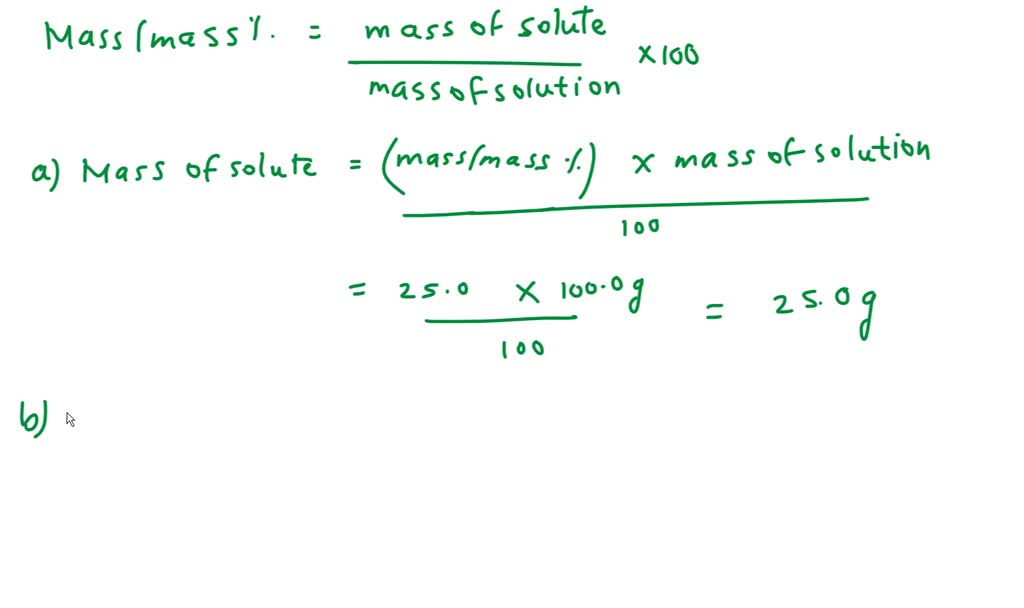 Mass/mass % = mass of solute / mass of solution × 100
a) Mass of solute = (mass/mass %) × mass of solution / 100
= 25.0 × 100.0g / 100 = 25.0g
b)